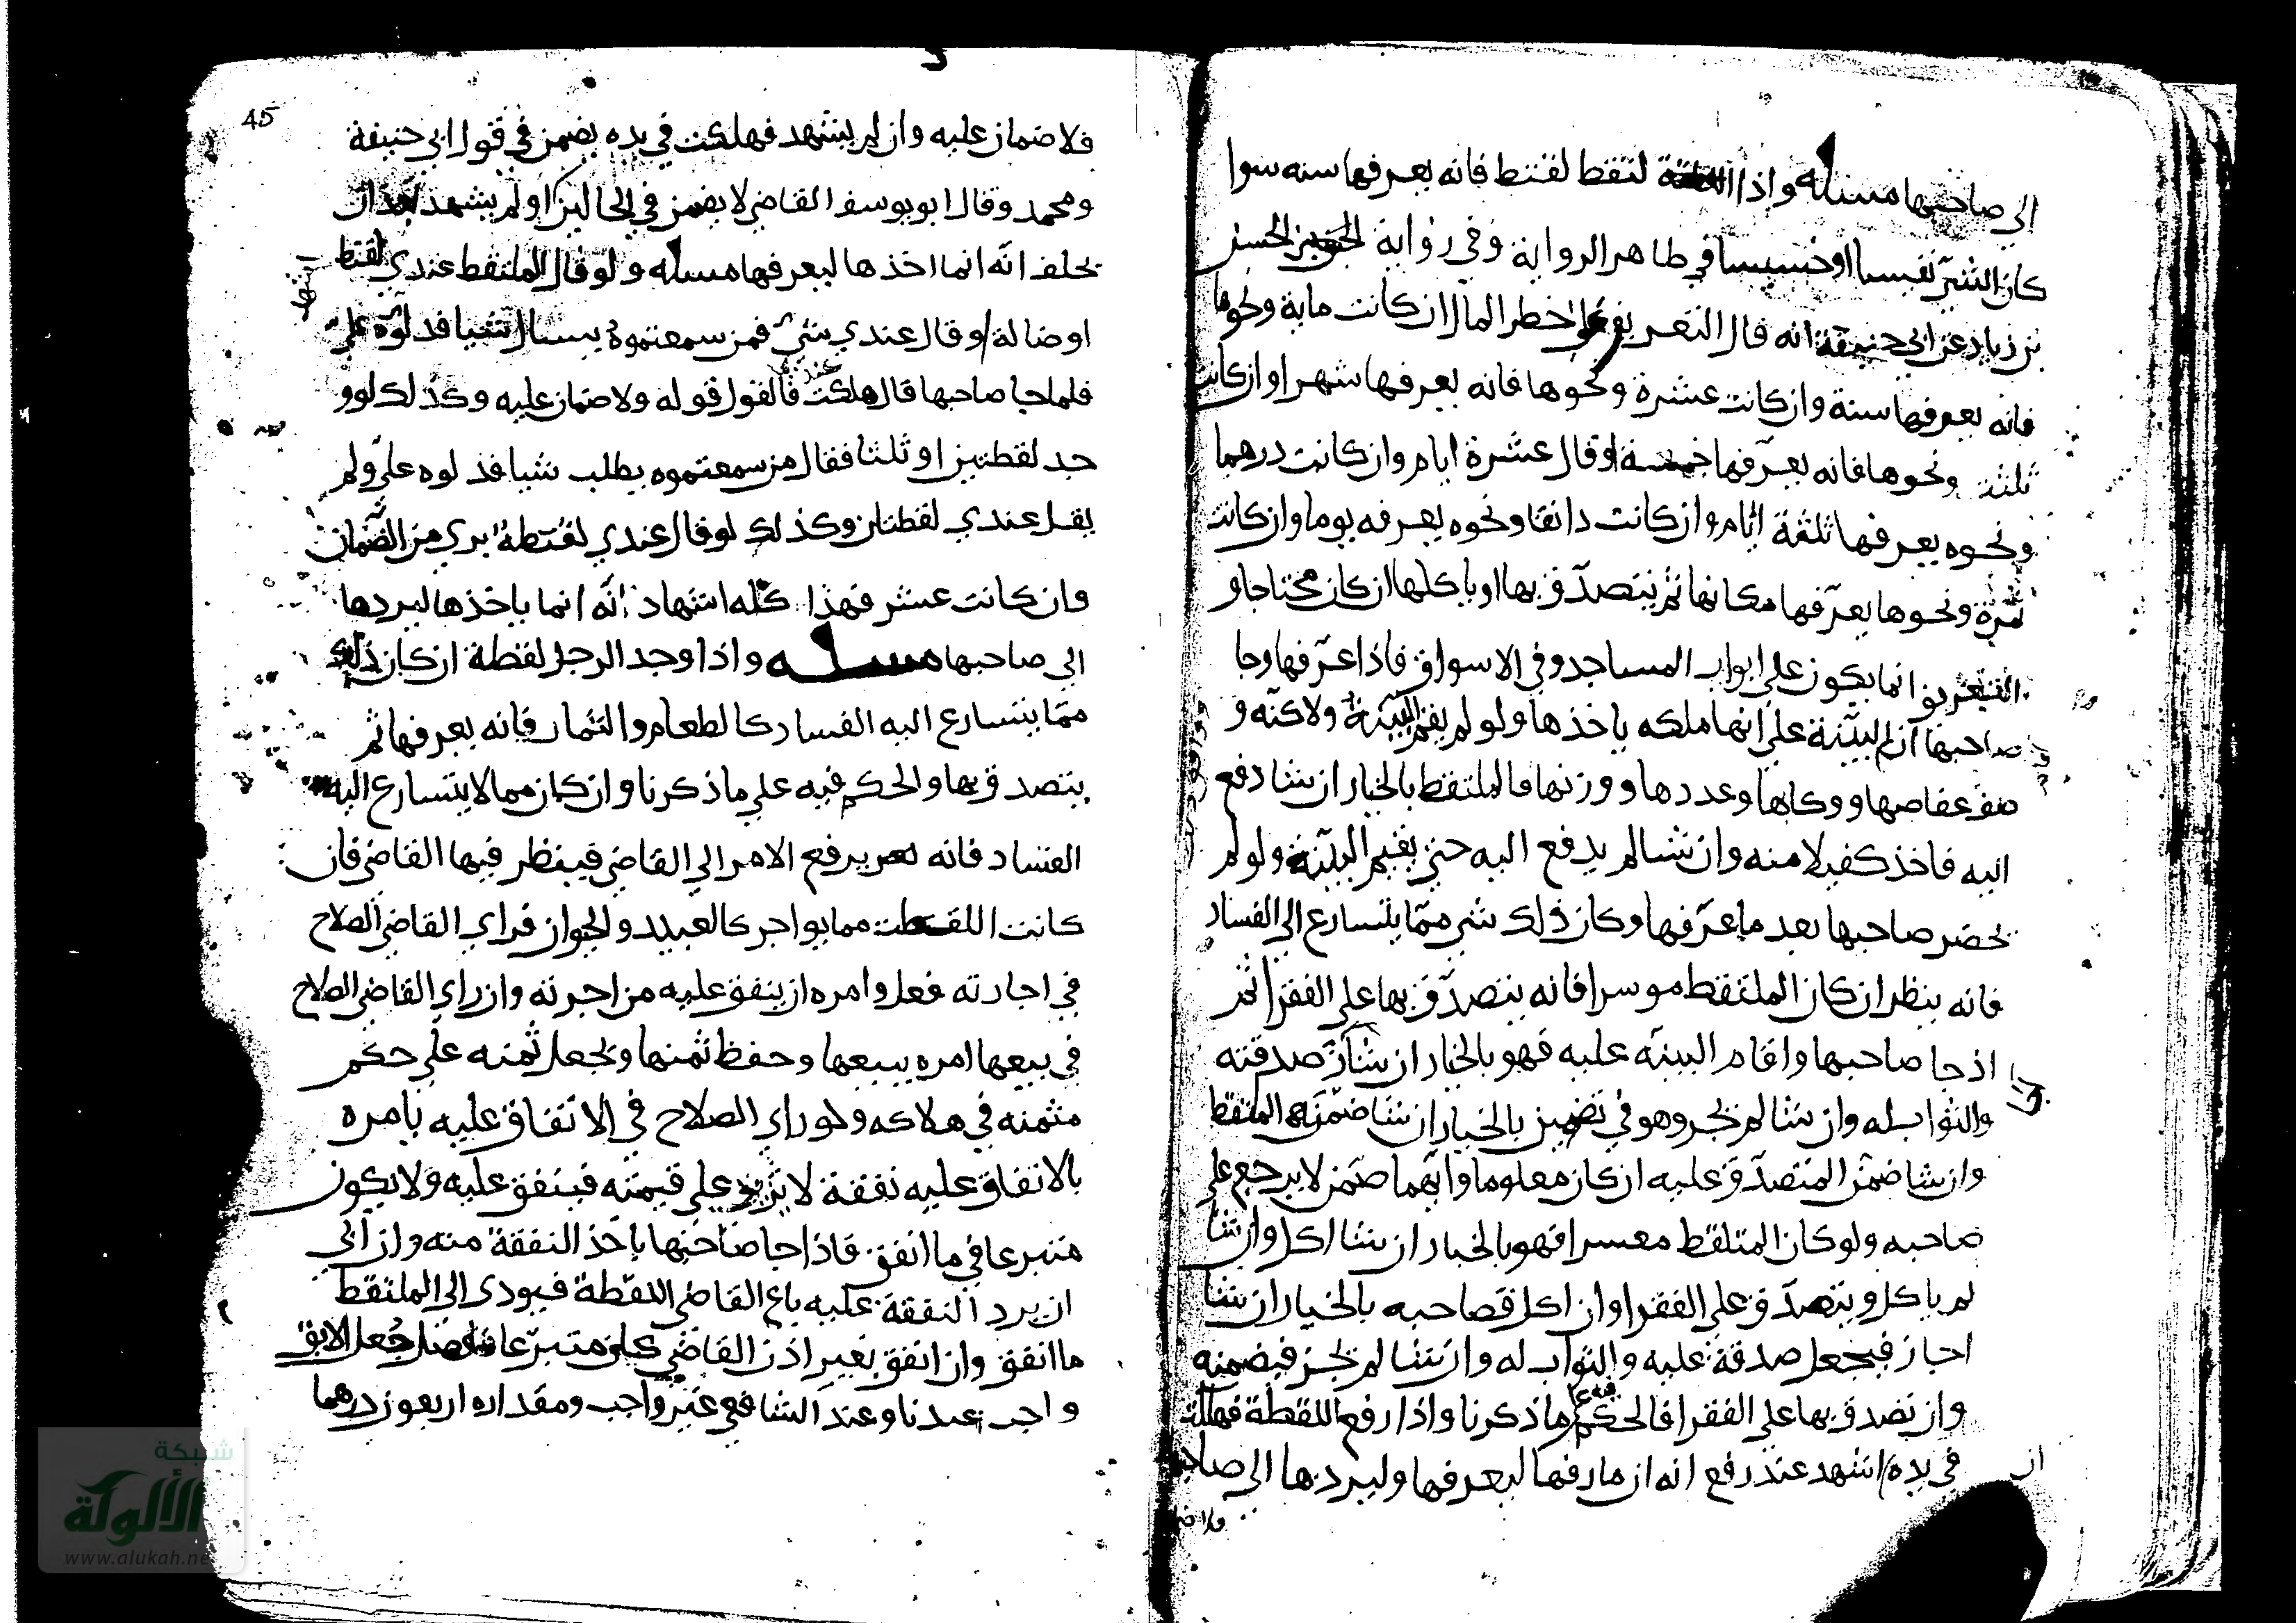 الي صاحبها مسئله واذا التقط لقتط فانه يعرفها سنه سوا
كان الشئ نفيسا او خسيسا في ظاهر الرواية وفي رواية الحسن
بن زياد عن ابي حنيفة انه قال التعريف علي خطر المال ان كانت ماية ونحوها
فانه يعرفها سنة وان كانت عشرة ونحوها فانه يعرفها شهرا وان كانت
ثلثة ونحوها فانه يعرفها خمسة او قال عشرة ايام وان كانت درهما
ونحوه يعرفها ثلثة ايام وان كانت دانقا ونحوه يعرفه يوما وان كانت
تمرة ونحوها يعرفها مكانها ثم يتصدق بها او ياكلها ان كان محتاجا و
التعريف انما يكون علي ابواب المساجد وفي الاسواق فاذا عرفها وجا
صاحبها البينة علي انها ملكه ياخذها ولو لم يقم البينة ولاكنه و
صف عفاصها ووكاها وعددها ووزنها فالملتقط بالخيار ان شا دفع
اليه فاخذ كفيلا منه وان شا لم يدفع اليه حتي يقيم البينة ولو لم
يحضر صاحبها بعد ما عرفها وكان ذلك شي مما يتسارع الي الفساد
فانه ينظر ان كان الملتقط موسرا فانه يتصدق بها علي الفقرا ثم
اذ جا صاحبها واقام البينه عليه فهو بالخيار ان شا صدقته
والثواب له وان شا لم يجر وهو في تضمين بالخيار ان شا ضمنه الملتقط
وان شا ضمن المتصدق عليه ان كان معلوما وايهما ضمن لا يرجع علي
صاحبه ولو كان المتلقط معسرا فهو بالخيار ان شا اكل وان شا
لم ياكل ويتصدق علي الفقرا وان اكل فصاحبه بالخيار ان شا
اجاز فيجعل صدقة عليه والثواب له وان شا لم يجز فيضمنه
وان تصدق بها علي الفقرا فالحكم فيه ما ذكرنا واذا رفع اللقطة فهلكت
في يده ان اشهد عند رفع انه ان ما رفها ليعرفها وليردها الي صاحبها
45
فلا ضمان عليه وان لم يشهد فهلكت في يده يضمن في قول ابي حنيفة
ومحمد وقال ابو يوسف القاضي لا يضمن في الحالين او لم يشهد بعد ان
يحلف انه انما اخذها ليعرفها مسئله ولو قال الملتقط عندي لقتط
او ضالة او قال عندي شئ فمن سمعتموه يسال شيا فدلوه علي
فلما جا صاحبها قال هلكت فالقول قوله ولا ضمان عليه وكذلك لو و
جد لقطتين او ثلثا فقال من سمعتموه يطلب شيا فدلوه علي ولم
يقل عندي لقطتان وكذلك لو قال عندي لقتطة بري من الضمان
وان كانت عشر فهذا كله اشهاد انه انما ياخذها ليردها
الي صاحبها مسئله واذا وجد الرجل لقطة ان كان ذلك
مما يتسارع اليه الفساد كالطعام والثمار فانه يعرفها ثم
يتصدق بها والحكم فيه علي ما ذكرنا وان كان مما لا يتسارع اليه
الفساد فانه يرفع الامر الي القاضي فينظر فيها القاضي فان
كانت اللقطت مما يواجر كالعبيد والجوان فراي القاضي الصلاح
في اجارته فعل وامره ان ينفق عليه من اجرته وان راي القاضي الصلاح
في بيعها امره ببيعها وحفظ ثمنها ويجعل ثمنه علي حكم
مثمنه في هلاكه ولو راي الصلاح في الانفاق عليه بامره
بالانفاق عليه نفقة لا يزيد علي قيمته فينفق عليه ولا يكون
متبرعا في ما انفق فاذا جا صاحبها ياخذ النفقة منه وان ابي
ان يرد النفقة عليه باع القاضي اللقطة فيودي الي الملتقط
ما انفق وان انفق بغير اذن القاضي كان متبرعا فصل جعل الابق
واجب عندنا وعند الشافعي غير واجب ومقداره اربعون درهما
شبكة
الألوكة
www.alukah.ne